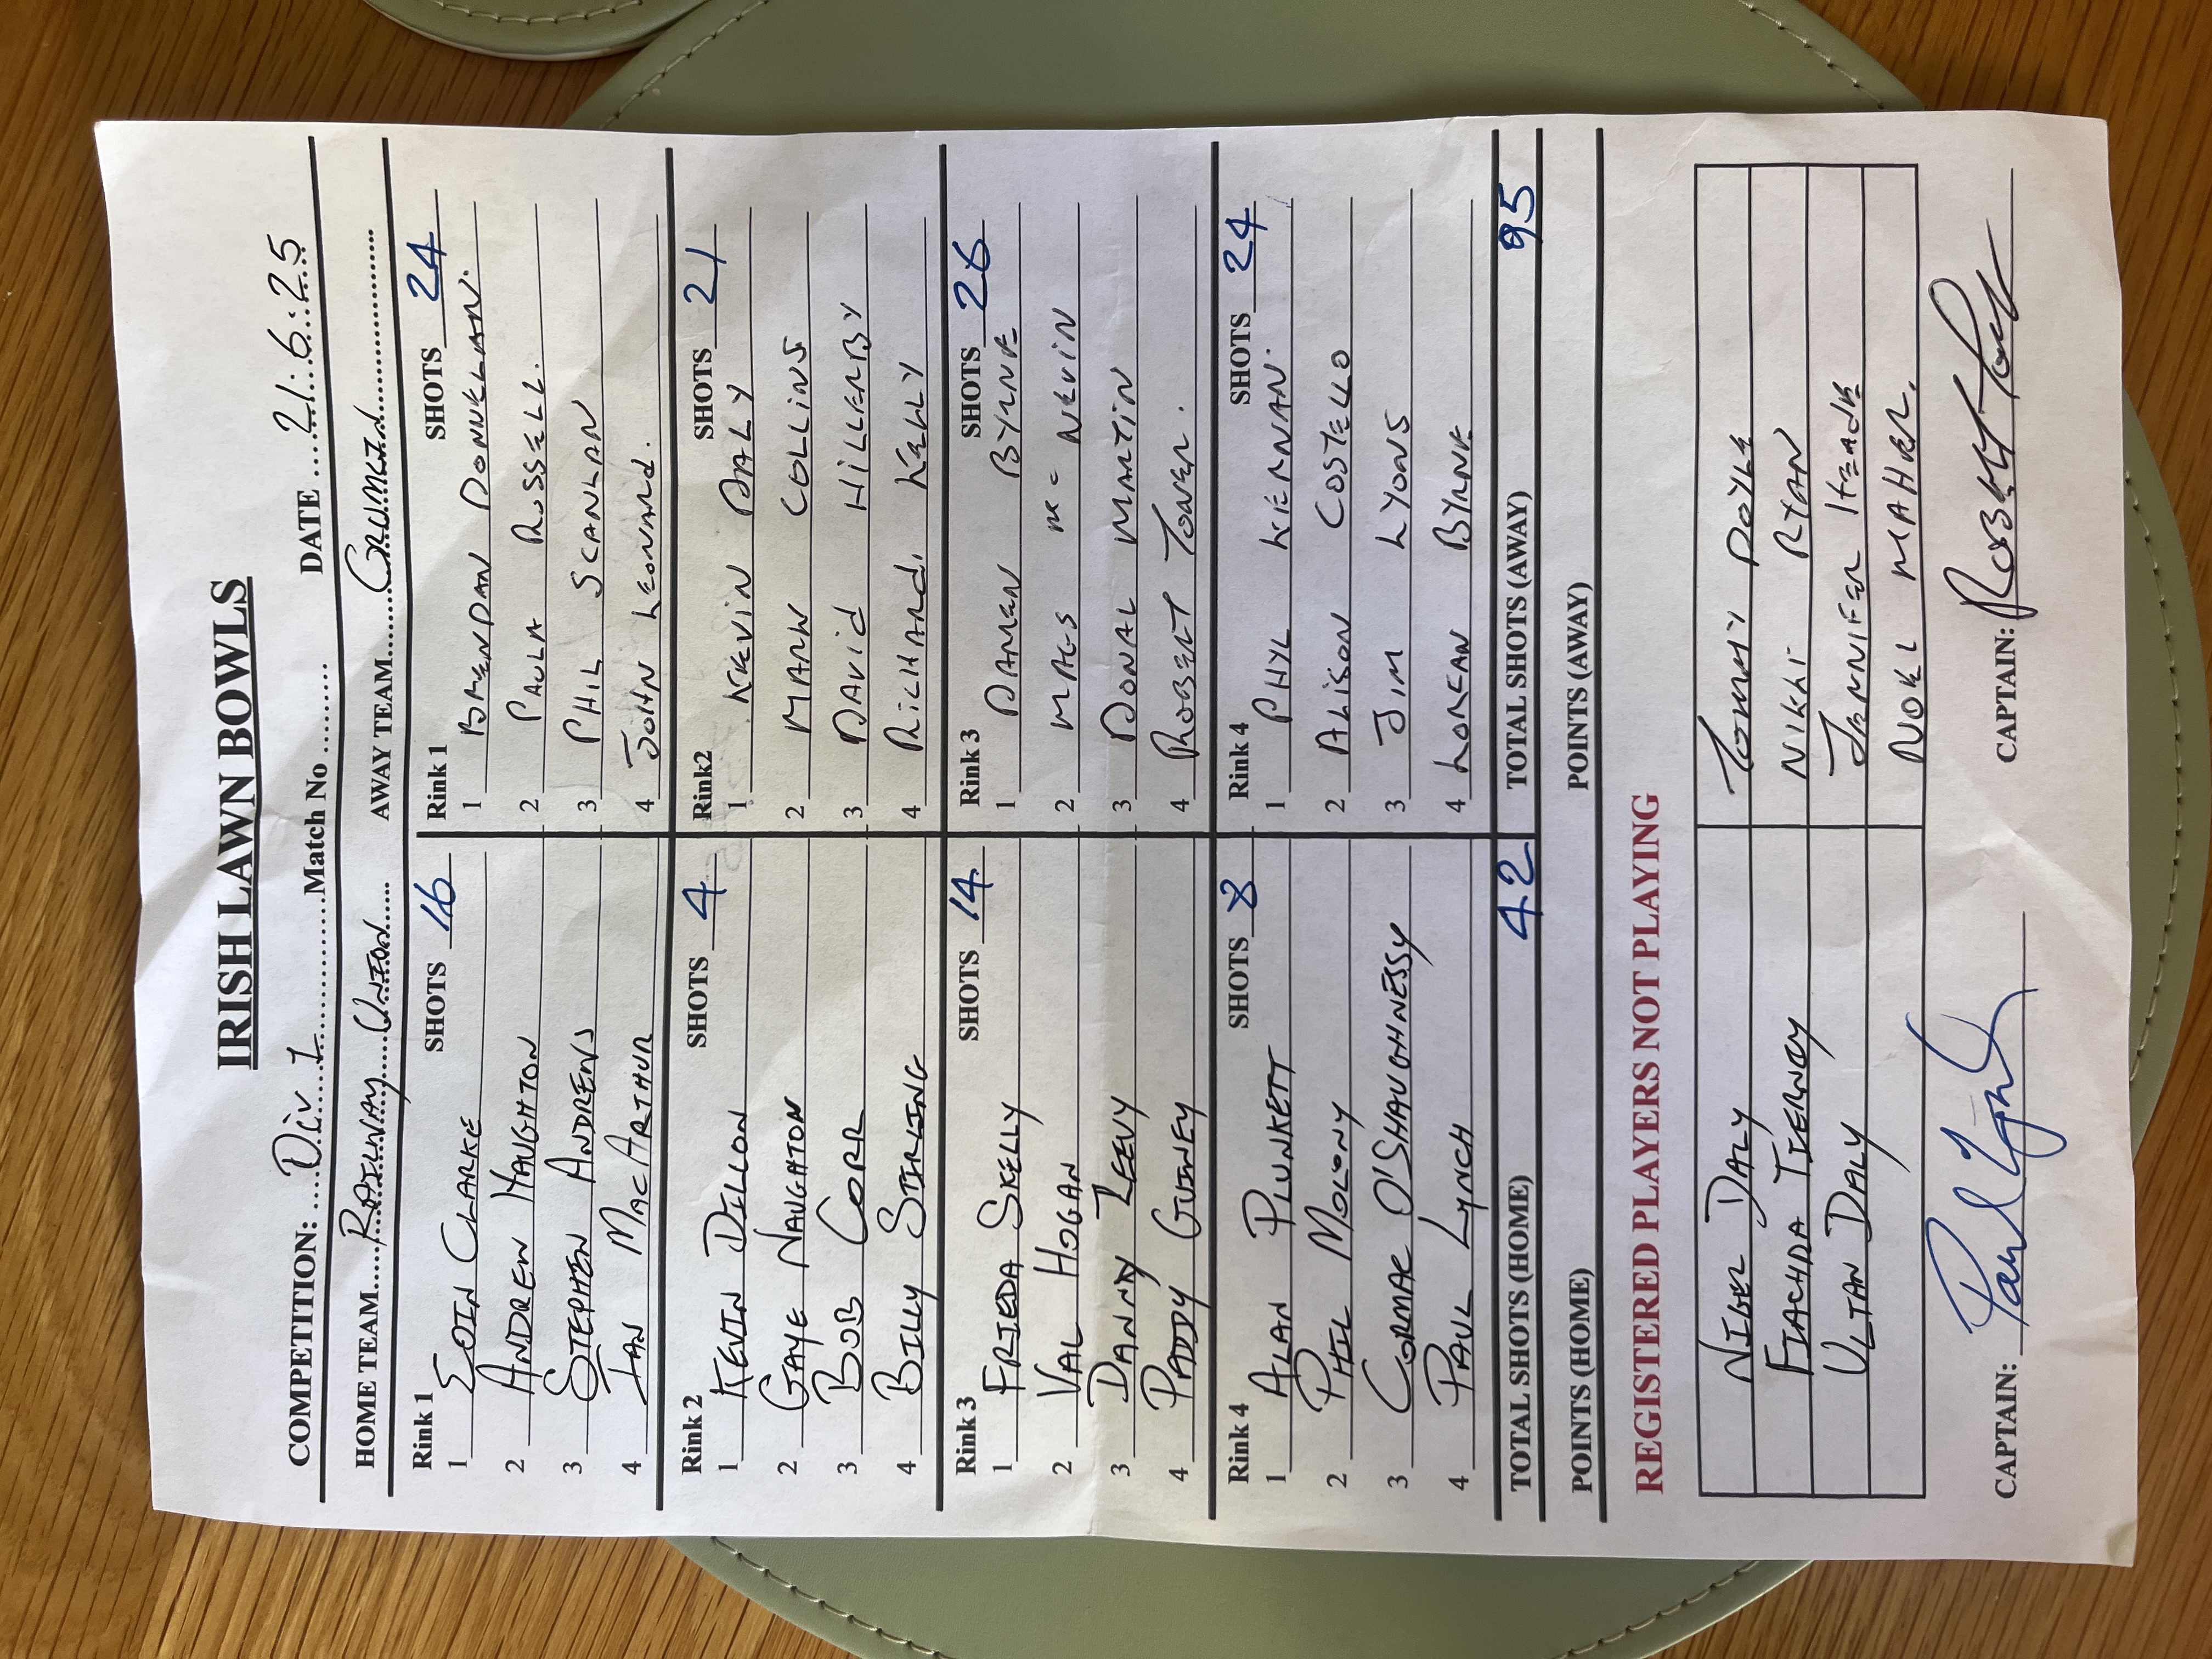 IRISH LAWN BOWLS
COMPETITION: ....Div 1..................Match No ........ DATE ....21:6:25
HOME TEAM....RAILWAY UNION.... AWAY TEAM......CRUMLIN..................
Rink 1 SHOTS 16 Rink 1 SHOTS 24
1 EOIN CLARKE 1 BRENDAN DONNELLAN.
2 ANDREW NAUGHTON 2 PAULA RUSSELL.
3 STEPHEN ANDREWS 3 PHIL SCANLAN
4 IAN MACARTHUR 4 JOHN LEONARD.
Rink 2 SHOTS 4 Rink2 SHOTS 21
1 KEVIN DILLON 1 KEVIN DALY
2 GAYE NAUGHTON 2 MARK COLLINS
3 BOB CORR 3 DAVID HILLERBY
4 BILLY STIRLING 4 RICHARD KELLY
Rink 3 SHOTS 14 Rink 3 SHOTS 26
1 FRIEDA SKELLY 1 DAMEN BYRNE
2 VAL HOGAN 2 MAGS Mc-NEVIN
3 DANNY LEEVY 3 DONAL MARTIN
4 PADDY GUINEY 4 ROBERT TONER.
Rink 4 SHOTS 8 Rink 4 SHOTS 24
1 ALAN PLUNKETT 1 PHYL KIERNAN.
2 PHIL MOLONY 2 ALISON COSTELLO
3 CORMAC O'SHAUGHNESSY 3 JIM LYONS
4 PAUL LYNCH 4 LORCAN BYRNE
TOTAL SHOTS (HOME) 42 TOTAL SHOTS (AWAY) 95
POINTS (HOME) POINTS (AWAY)
REGISTERED PLAYERS NOT PLAYING
NIGEL DALY TOMMY DOYLE
FIACHDA TIERNEY NIKKI RYAN
ULTAN DALY JENNIFER HEADE
NOEL MAHER.
CAPTAIN: Paul Lynch CAPTAIN: Robert Toner